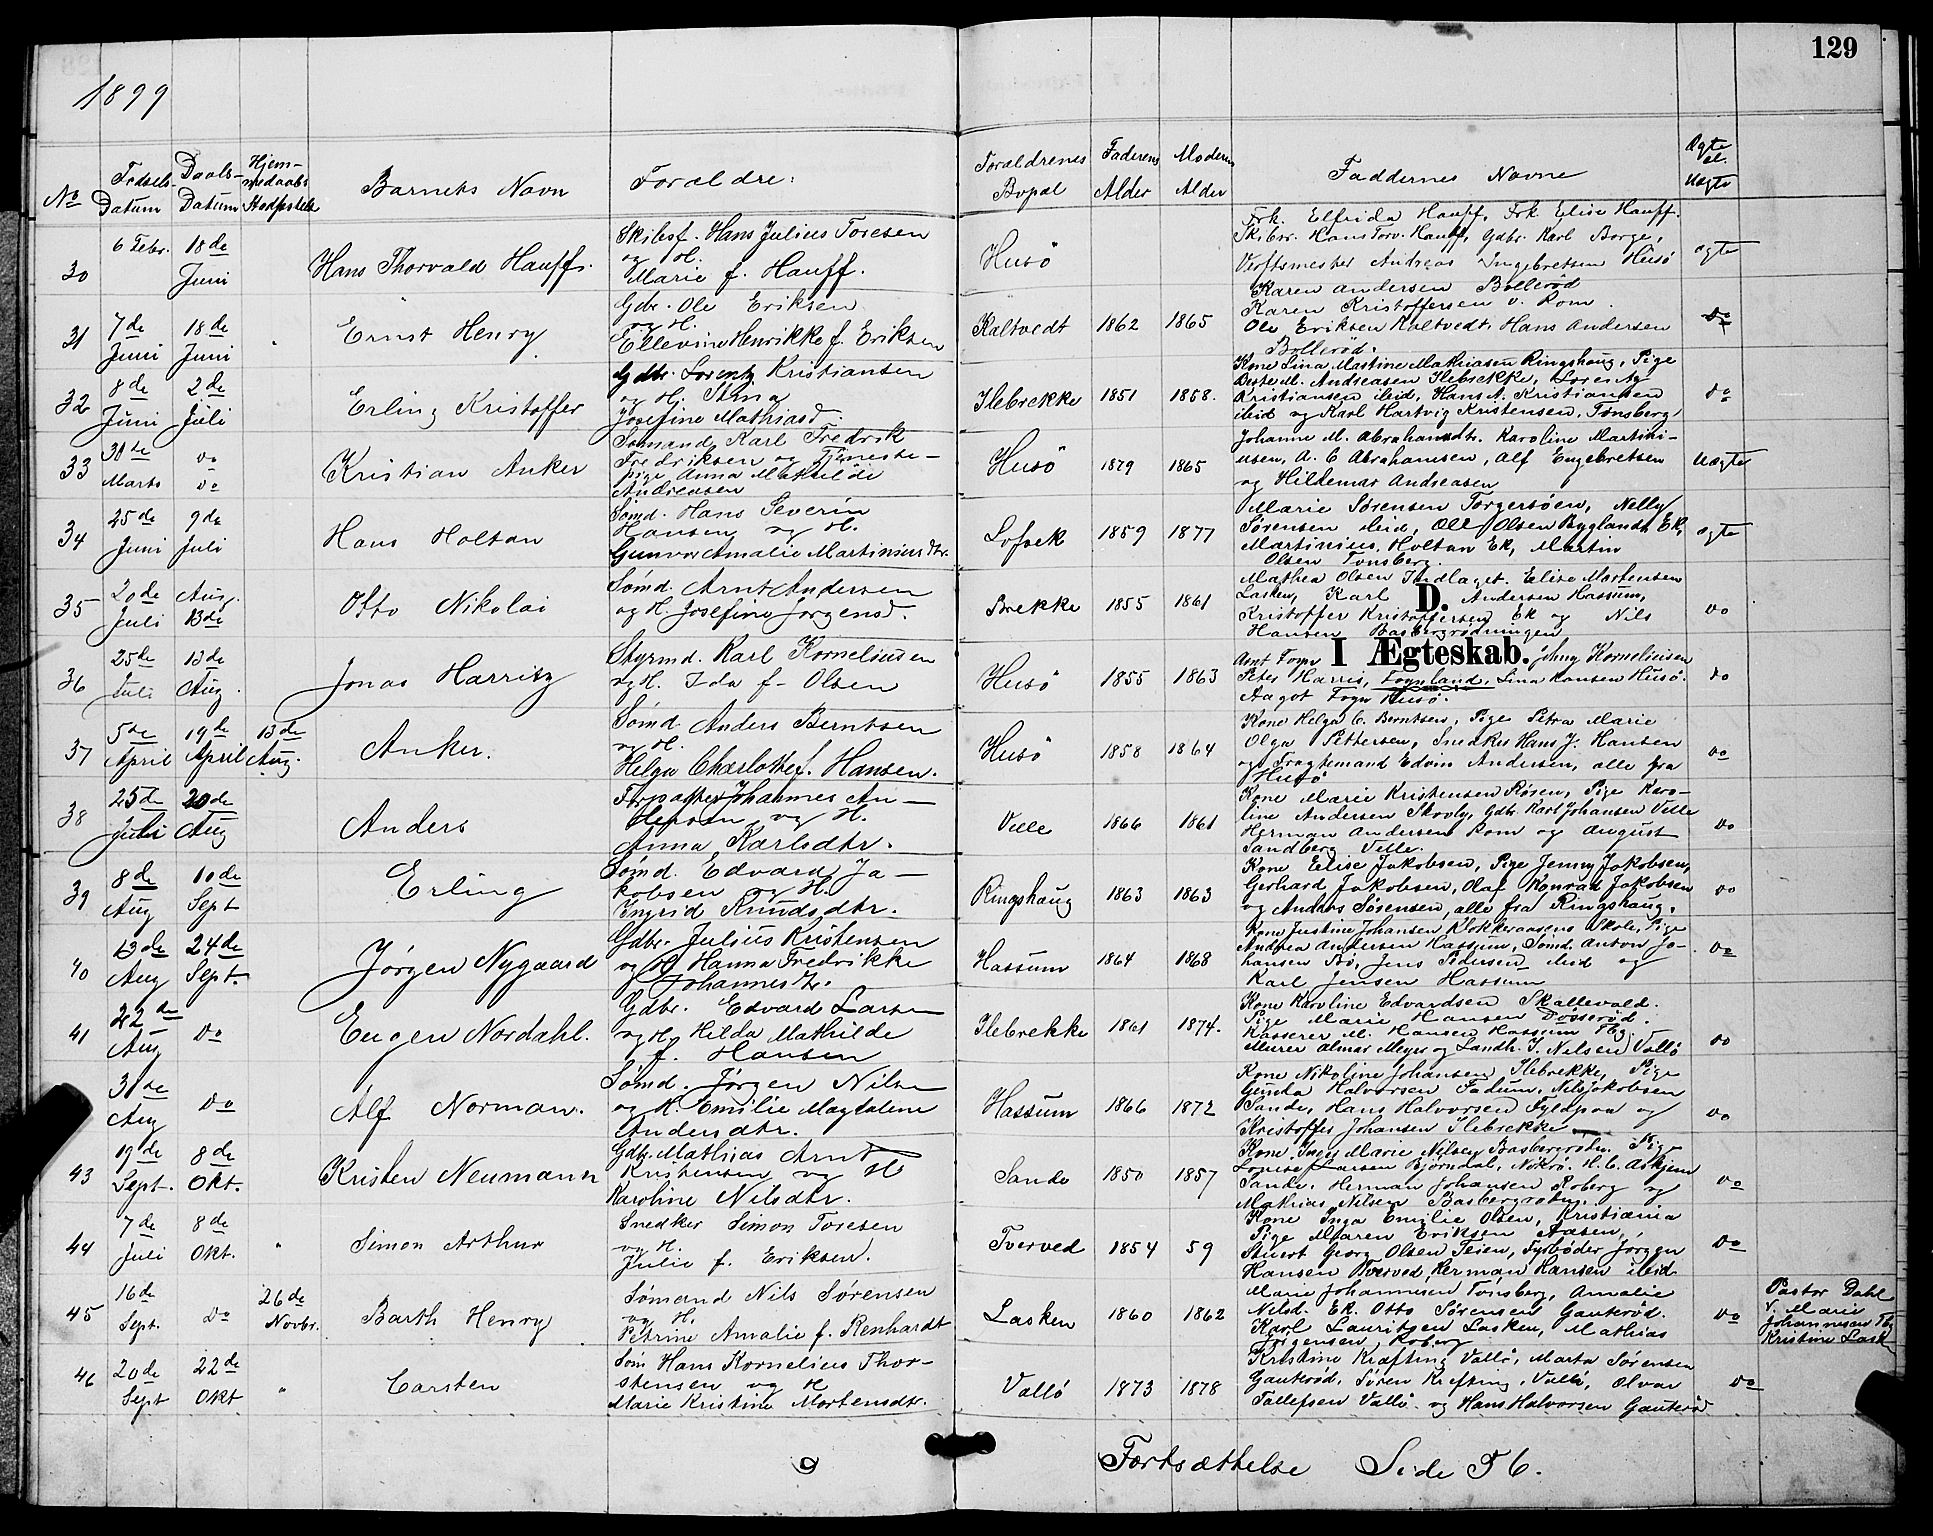 129
1899
No
Fødsels- Datum
Daabs- Datum
Hjem- medaabs Stadfæstelse
Barnets Navn
Forældre:
Forældrenes Bopæl
Faderens Alder
Moderens Alder
Faddernes Navne
Ægte el. Uægte
30 6 Febr. 18de Juni Hans Thorvald Hauff.
Skibsf. Hans Julius Toresen
og H.
Marie f. Hauff.
Husö
Frk. Elfrida Hauff, Frk Elise Hauff.
Skibsr. Hans Torv. Hauff, Gdbr. Karl Borge,
Verftsmester Andreas Ingebretsen Husö
ægte
31 7de Juni 18de Juni " Ernst Henry
Gdbr. Ole Eriksen
og H.
Ellevine Henrikke f. Eriksen
Kaltvedt 1862 1865
Karen Andersen Bollerød
Karen Kristoffersen v. Rom.
Ole Eriksen Kaltvedt, Hans Andersen
Bollerød.
do
32 8de Juni 2de Juli Erling Kristoffer
Gdbr. Lorentz Kristiansen
og H. Stina
Josefine Mathiasd.
Ilebrekke 1851 1858.
Kone Lina Martine Mathiasen Ringshaug, Pige
M. Andreasen Ilebrekke,
Kristiansen ibid, Hans A. Kristiansen
ibid og Karl Hartvig Kristensen, Tønsberg
do
33 31te Marts do do Kristian Anker
Sømand Karl Fredrik
Fredriksen og Tjeneste-
pige Anna Mathilde
Andreasen
Husö 1879 1865
Johanne M. Abrahamsdtr. Karoline Martini-
usen, A. C. Abrahamsen, Alf Engebretsen
og Hildemar Andreasen
Uægte
34 25de Juni 9de Juli Hans Holtan
Sømd. Hans Severin
Hansen og H.
Gunvor Amalie Martiniusdtr.
Lofvek 1859 1877
Marie Sørensen Torgersöen, Nelly
Sørensen ibid, Olsen Bygland, Ek,
Martinius Holtan Ek, Martin
Olsen Tonsberg.
ægte
35 20de Juli Aug. 13de Otto Nikolai
Sømd. Arnt Andersen
og H. Josefine Jørgensd.
Brekke 1855 1861
Mathea Olsen Elise Mortensen
Lasken, Karl Andersen Hassum,
Kristoffer Kristoffersen Ek og Nils
Hansen Basbergrødningen
do
D.
I Ægteskab.
36 25de Juli 13de Aug. Jonas Harritz
Styrmd. Karl Korneliusen
og H. Ida f- Olsen
Husö 1855 1863
Jenny Korneliusen
Peter Harris, Fognland, Lina Hansen Husö.
Aagot Fogn Husö.
do
37 5te April 19de April 13de Aug. Anker.
Sømd. Anders Berntsen
og H.
Helga Charlothe f. Hansen.
Husö 1858 1864
Kone Helga C. Berntsen, Pige Petra Marie
Olga Pettersen, Snedker Hans J. Hansen
og Fragtemand Edvin Andersen, alle fra
Husö
do
38 25de Juli 20de Aug Anders
Forpagter Johannes An-
dersen og H.
Anna Karlsdtr.
Velle 1866 1861
Kone Marie Kristensen Røsen, Pige Karo-
line Andersen Skovly, Gdbr Karl Johansen Velle
Herman Andersen Rom og August
Sandberg Velle.
do
39 8de Aug 10de Sept Erling
Sømd. Edvard Ja-
kobsen og H.
Ingrid Knudsdtr.
Ringshaug 1863 1863
Kone Elise Jakobsen, Pige Jenny Jakobsen,
Gerhard Jakobsen, Olaf Konrad Jakobsen
og Anders Sørensen, alle fra Ringshaug.
do
40 13de Aug 24de Sept. Jørgen Nygaard
Gdbr. Julius Kristensen
og H. Hanna Fredrikke
Johannesdtr.
Hassum 1864 1868
Kone Justine Johansen Klokkeraasens Skole, Pige
Andrea Andersen Hassum, Sømd. Anton Jo-
hansen Bö, Jens Pedersen ibid og
Karl Jensen Hassum
do
41 22de Aug do Eugen Nordahl.
Gdbr. Edvard Larsen
og H. Hilda Mathilde
f. Hansen
Ilebrekke 1861 1874.
Kone Karoline Edvardsen Skallevold.
Pige Marie Hansen Døsserød.
Kasserer M. Hansen Hassum Tbg
Murer Almar Meyer og Landh. J. Nilsen Vallö
do
31de Aug do Alf Norman.
Sømd. Jørgen Nilsen
og H. Emilie Magdalene
Andersdtr.
Hassum 1866 1872
Kone Nikoline Johansen Ilebrekke, Pige
Gunda Halvorsen Fadum, Nils Jakobsen
Sande, Hans Halvorsen Fyldpaa og
Kristoffer Johansen Ilebrekke
do
43 19de Sept. 8de Okt. Kristen Neumann
Gdbr. Mathias Arnt
Kristensen og H
Karoline Nilsdtr.
Sande 1850 1857
Kone Inger Marie Nilsen Basbergrødn. Pige
Lovise Larsen Bjørndal, H. C. Askjem
Sande, Herman Johansen Roberg og
Mathias Nilsen Basbergrødn.
do
44 7de Juli 8de Okt. " Simon Arthur
Snedker Simon Toresen
og H.
Julie f. Eriksen.
Tverved 1854 59
Kone Inga Emilie Olsen, Kristiania
Pige Maren Eriksen Aasen,
Stuert Georg Olsen Teien, Fyrbøder Jørgen
Hansen Tverved, Herman Hansen ibid
do
45 16de Sept. do 26de Novbr. Barth Henry
Sømand Nils Sørensen
og H.
Petrine Amalie f. Renhardt
Lasken 1860 1862
Marie Johannesen Tönsberg, Amalie
Nilsd. Ek. Otto Sørensen Gauterød.
Karl Lauritzen Lasken, Mathias
Jørgensen Roberg
do
Pastor Dahl
v. Marie
Johannesen Tbg
Kristine Lask
46 20de Sept 22de Okt " Carsten
Søm Hans Kornelius Thor-
stensen og H
Marie Kristine Mortensdtr.
Vallö 1873 1878
Kristine Kræfting Vallö, Marta Sörensen
Gauterød, Sören Kræfting, Vallö, Olvar
Tallefsen Vallö og Hans Halvorsen Gauterød
do
Fortsættelse Side 56.